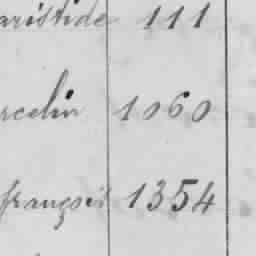 aristide 111
rcelin 1060
françois 1354